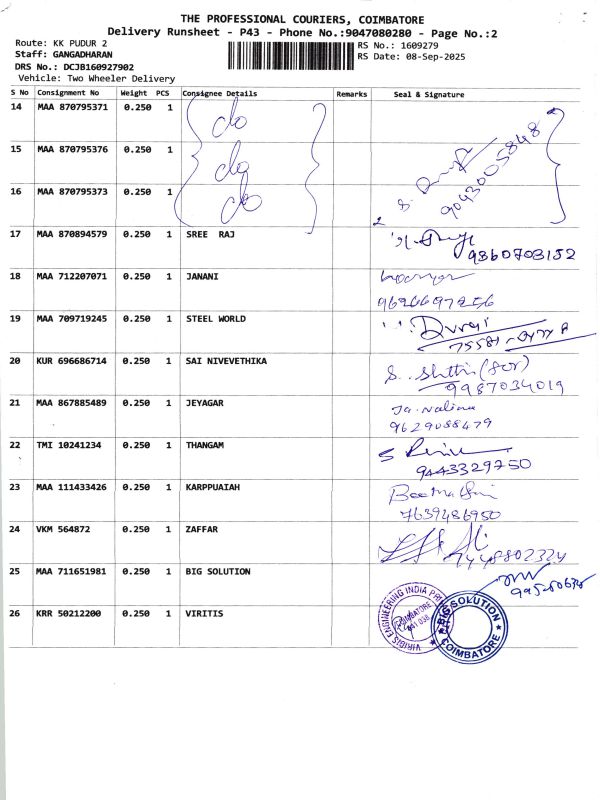 THE PROFESSIONAL COURIERS, COIMBATORE
Delivery Runsheet - P43 - Phone No.:9047080280 - Page No.:2
Route: KK PUDUR 2
Staff: GANGADHARAN
DRS No.: DCJB160927902
Vehicle: Two Wheeler Delivery
RS No.: 1609279
RS Date: 08-Sep-2025
S No Consignment No Weight PCS Consignee Details Remarks Seal & Signature
14 MAA 870795371 0.250 1 do
15 MAA 870795376 0.250 1 do
16 MAA 870795373 0.250 1 do
9043005848
17 MAA 870894579 0.250 1 SREE RAJ
9360703152
18 MAA 712207071 0.250 1 JANANI
9626697256
19 MAA 709719245 0.250 1 STEEL WORLD Durai
20 KUR 696686714 0.250 1 SAI NIVEVETHIKA S. Shthi (for)
9987034019
21 MAA 867885489 0.250 1 JEYAGAR Ja. Nalina
9629088479
22 TMI 10241234 0.250 1 THANGAM
9443329750
23 MAA 111433426 0.250 1 KARPPUAIAH
7639486950
24 VKM 564872 0.250 1 ZAFFAR
7448802324
25 MAA 711651981 0.250 1 BIG SOLUTION
26 KRR 50212200 0.250 1 VIRITIS
VIRIDIS ENGINEERING INDIA PRI
COIMBATORE
641 038
BIG SOLUTION
COIMBATORE